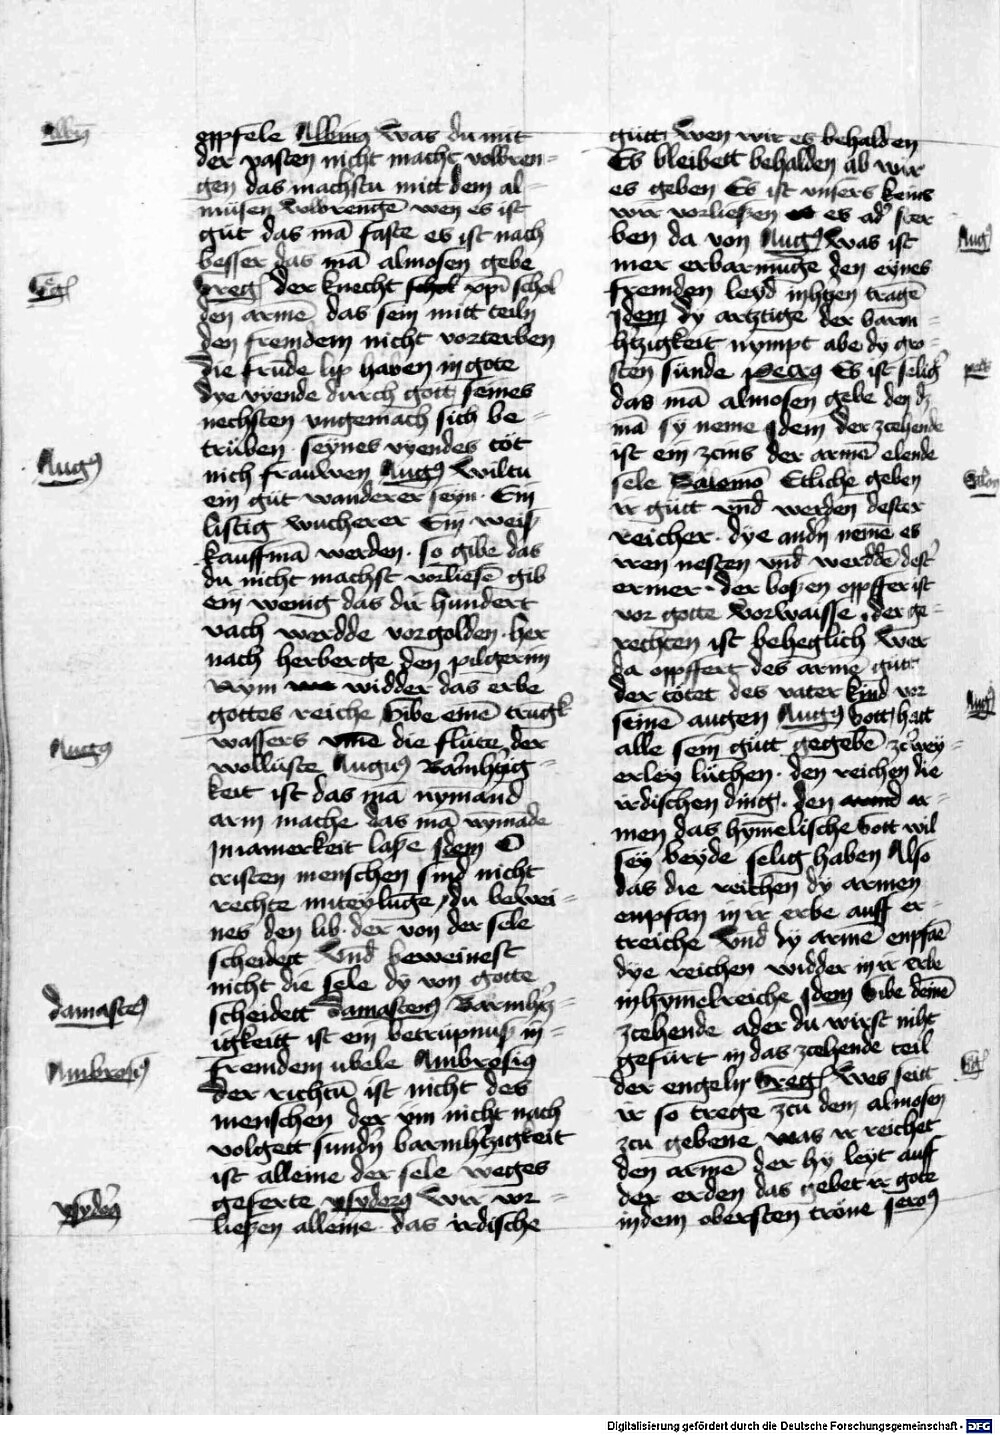 Albiꝯ
Greg
Augꝯ
Augꝯ
damasceꝯ
Ambrosiꝯ
ysydorꝯ
oppfele Albinꝯ was du mit
der vasten nicht macht volbren=
gen das machstu mitt dem al=
müsen volbrengē wen es ist
güt das mā faste es ist nach
besser das mā almosen gebe
Greg der knecht xpi schol
den armē das sein mitt teiln
den fremdem nicht vorterben
die frūde lip haben in gote
dye vÿende durch gott seines
nechsten vngemach sich be=
trüben · seÿnes vyendes tot
nich frawwen Augꝯ wiltu
ein güt wanderer seyn · Ein
listig wucherer Ein weiß
kauffmā werden · so gibe das
du nicht machst vorliesē gib
ein wenig das dir hundert
vach werdde vorgolden · her
nach herberge den pilgerim
nym widder das erbe
gottes reiche Gibe einē trugk
wassers die flüte der
wollüste Augꝯ Barmhtzig=
keit ist das mā nymand
arm mache das mā nÿmāde
laße Jdem O
cristen menschen sind nicht
rechte miteÿlūge du bewei=
nes den lib · der von der sele
scheidett vnd beweinest
nicht die sele dy von gotte
scheidett Damascenꝯ Barmhtz=
igkeitt ist ein betrüpnuß in=
fremdem ubele Ambrosiꝯ
der richtū ist nicht des
menschen der ym nicht nach
volgett sundn barmhtzigkeit
ist alleine der sele weges
geferte ysydorꝯ wir vor=
ließen alleine · das irdische
gütt wen wir es behalden
Es bleibett behalden ab wir
es geben Es ist vnsers keins
wir vorließen es ad ster
ben da von Augꝯ was ist
mer erbarmūge den eÿnes
fremden leÿd in htzen tragē
Jdem dy artztige der barm=
htzigkeit nympt abe dy gro=
sten sünde Petrꝯ Es ist selig
das mā almosen gebe den dz
mā sy neme Jdem der zcehende
ist ein zcins der armē elende
sele Salemō Etliche geben
ir gütt vnd werden dester
reicher · dye andn nemē es
iren nesten vnd werddē dest
ermer · der boßen oppffer ist
vor gotte vorwaisse · der ge=
rechten ist beheglich wer
da oppffert des armē gütt
der tötet des vater kind vor
seinē augen Augꝯ Gott hatt
alle sein gütt gegebē zcwey=
erley lüthen · den reichen die
irdischen ding · den ar=
men das hÿmelische Gott wil
sey beÿde selig haben Also
das die reichen dÿ armen
enpfan in ir erbe auff er=
treiche vnd dÿ armē enpfaē
dÿe reichen widder in ir erbe
in hÿmelreiche Jdem Gibe deinē
zcehende ader du wirst niht
gefürt in das zcehende teil
der engeln Greg wes seitt
ir so trege zcu dem almosen
zcu gebene was ir reichet
den armē der hÿ leyt auff
der erden das gebet ir gote
in dem obersten trone Jeroꝯ
Augꝯ
petr
Salon
Augꝯ
Greg
Digitalisierung gefördert durch die Deutsche Forschungsgemeinschaft - DFG